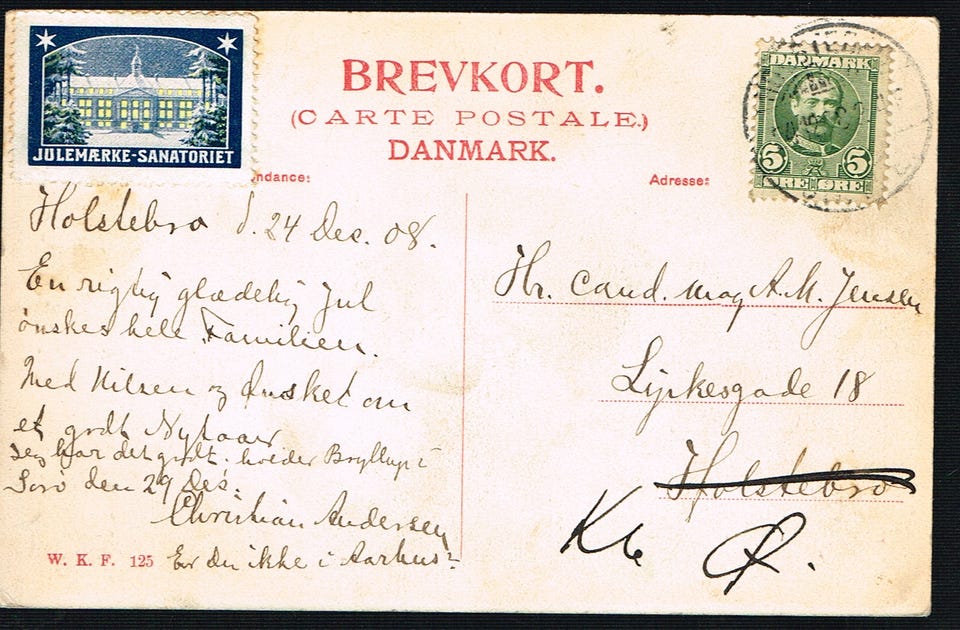 JULEMÆRKE-SANATORIET
BREVKORT.
(CARTE POSTALE.)
DANMARK.
DANMARK
5 5
ØRE ØRE
ndance:
Adresse:
Holstebro d. 24 Dec. 08.
En rigtig glædelig Jul
ønskes hele Familien.
Med Hilsen og Ønsket om
et godt Nytaar
Jeg har det godt. holder Bryllup i
Sorø den 29 Des.
Christian Andersen
Er du ikke i Aarhus?
W. K. F. 125
Hr. cand. mag A. M. Jensen
Lykkesgade 18
Holstebro
Ø.